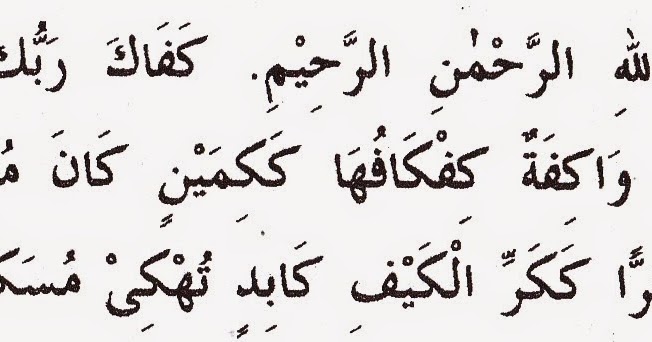 للهِ الرَّحْمٰنِ الرَّحِيْمِ. كَفَاكَ رَبُّكَ
وَاكِفَةً كِفْكَافُهَا كَكَمِيْنٍ كَانَ مُ
رًّا كَكَرِّ الْكَيْفِ كَابِدٍ تُهْكِيْ مُسَكـ